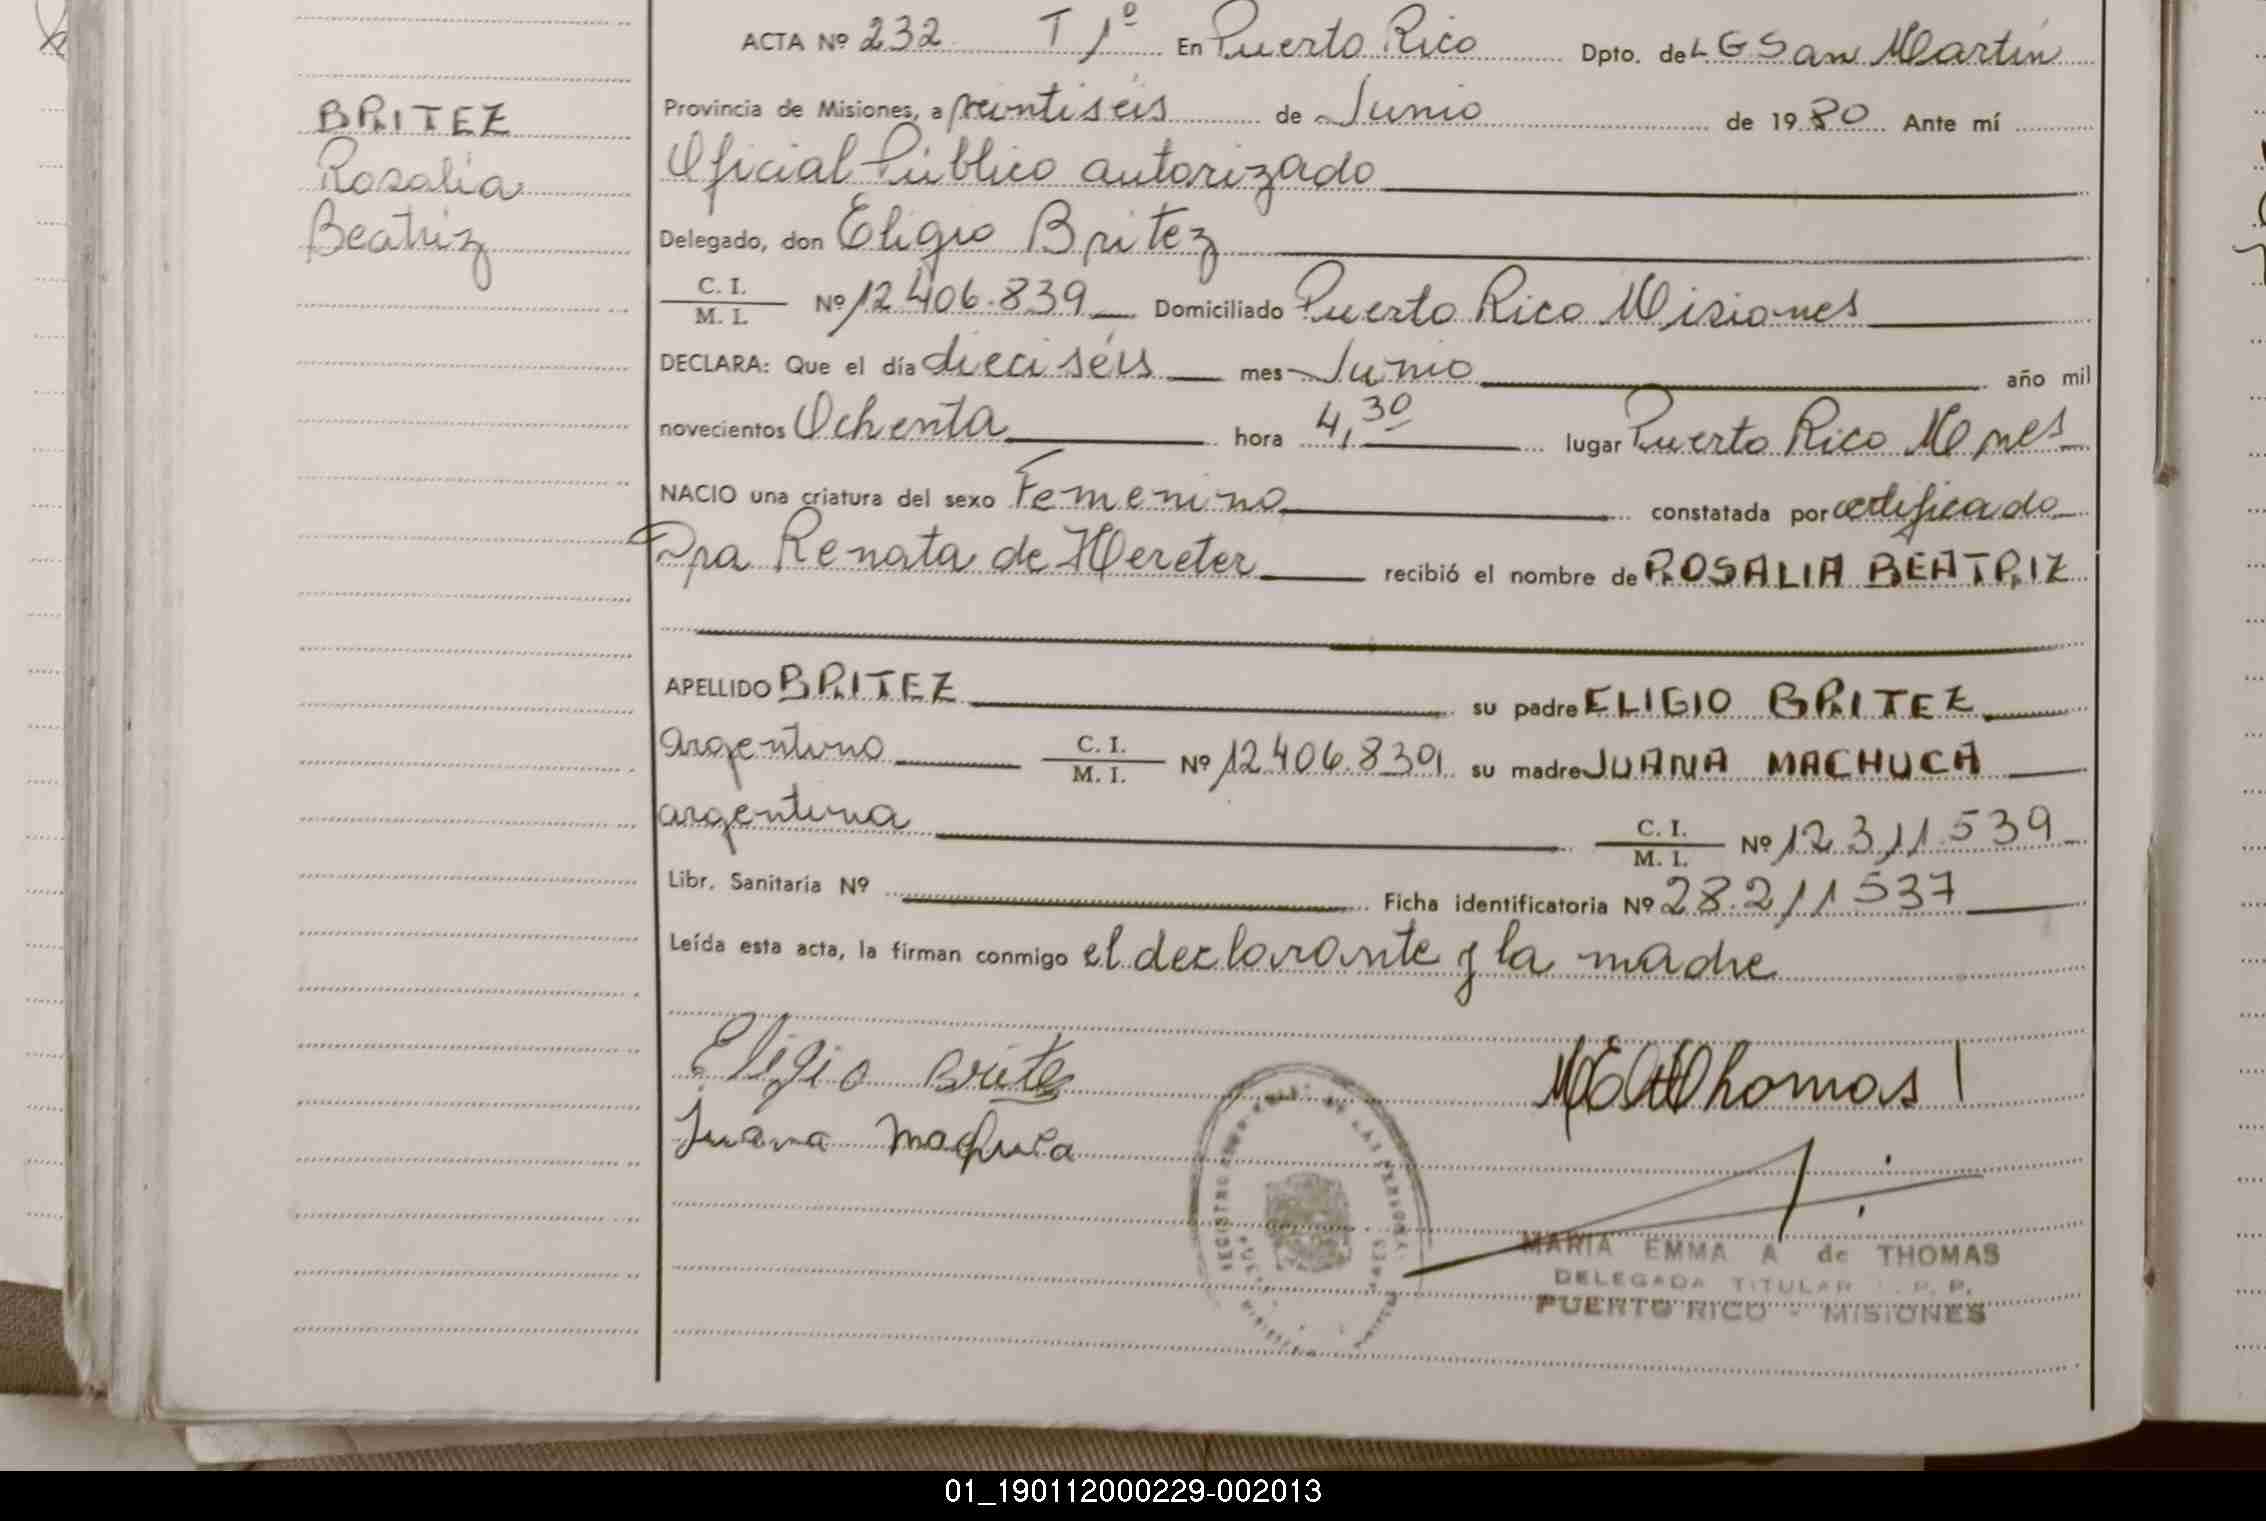 ACTA Nº 232 T 1º En Puerto Rico Dpto. de L G San Martín
BRITEZ
Rosalia
Beatriz
Provincia de Misiones, a veintiséis de Junio de 1980 Ante mí
Oficial Público autorizado
Delegado, don Eligio Britez
C. I.
M. I. Nº 12.406.839 Domiciliado Puerto Rico Misiones
DECLARA: Que el día dieciséis mes Junio año mil
novecientos Ochenta hora 4,30 lugar Puerto Rico Mnes
NACIO una criatura del sexo Femenino constatada por certificado
Dra Renata de Mereter recibió el nombre de ROSALIA BEATRIZ
APELLIDO BRITEZ su padre ELIGIO BRITEZ
argentino C. I.
M. I. Nº 12.406.839 su madre JUANA MACHUCA
argentina C. I.
M. I. Nº 12.311.539
Libr. Sanitaria Nº Ficha identificatoria Nº 28.211.537
Leída esta acta, la firman conmigo el declarante y la madre
Eligio Britez
Juana Machuca
MARIA EMMA A de THOMAS
DELEGADA TITULAR R. P.
PUERTO RICO - MISIONES
01_190112000229-002013